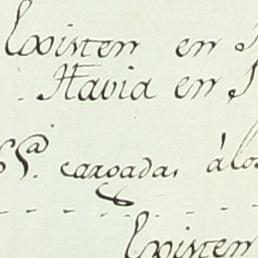 Existen en
Havia en
Sª. cargadas álos
Existen